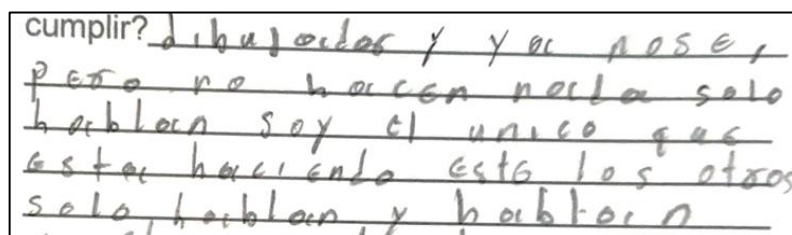 cumplir? dibujador y ya nose,
pero no hacen nada solo
hablan soy el unico que
esta haciendo esto los otros
solo hablan y hablan